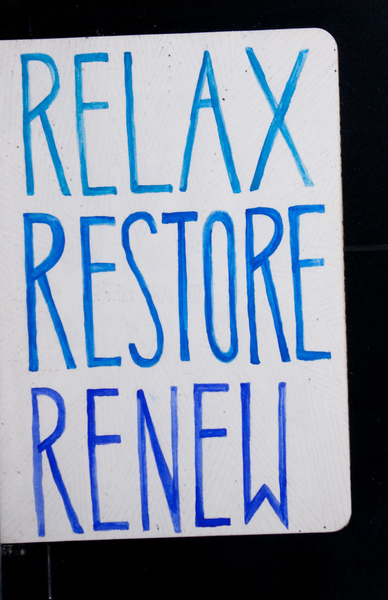 RELAX
RESTORE
RENEW